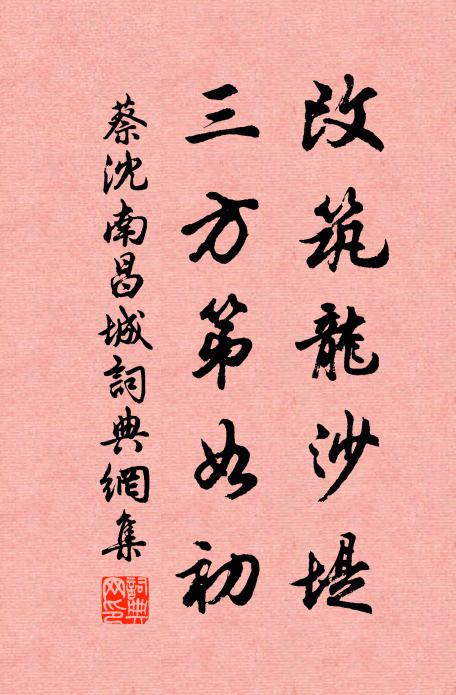 改筑龍沙堤
三方第如初
蔡沈南昌城詞典網集
詞典網印